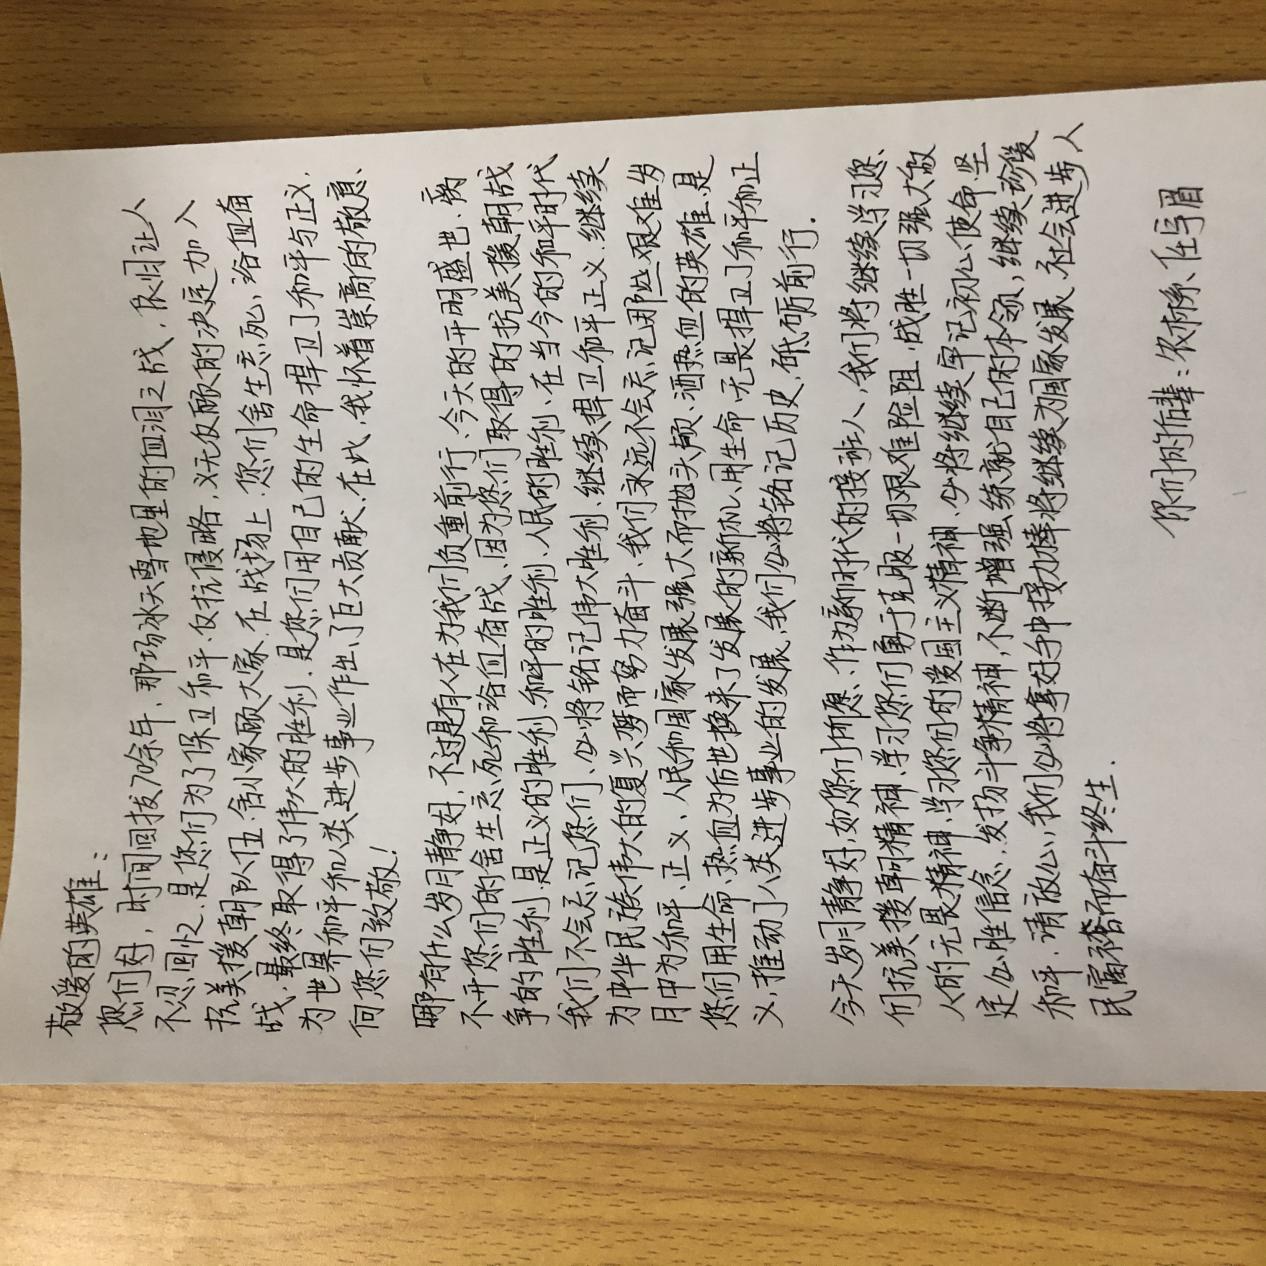 敬爱的英雄：
您们好，时间回拔70余年，那场冰天雪地里的血泪之战，依旧让人
不忍回忆，是您们为了保卫和平、仅抗侵略，义无反顾的决定加入
抗美援朝队伍，舍小家顾大家，在战场上，您们舍生忘死，浴血奋
战，最终取得了伟大的胜利，是您们用自己的生命捍卫了和平与正义，
为世界和平和人类进步事业作出了巨大贡献、在此，我怀着崇高的敬意、
向您们致敬！
哪有什么岁月静好，不过是有人在为我们负重前行、今天的开明盛世、离
不开您们的舍生忘死和浴血奋战、因为您们取得的抗美援朝战
争的胜利，是正义的胜利、和平的胜利、人民的胜利、在当今的和平时代
我们不会忘记您们、必将铭记伟大胜利、继续捍卫和平正义、继续
为中华民族伟大的复兴梦而努力奋斗、我们永远不会忘记那些艰难岁
月中为和平、正义、人民和国家发展强大而抛头颅、洒热血的英雄、是
您们用生命、热血为后世换来了发展的新机、用生命无畏捍卫了和平和正
义，推动了人类进步事业的发展，我们必将铭记历史，砥砺前行．
今天岁月静好，如您们所愿、作为新时代的接班人，我们将继续学习您、
们抗美援朝精神、学习您们勇于克服一切艰难险阻，战胜一切强大敌
人的无畏精神、学习您们的爱国主义精神、必将继续牢记初心使命坚
定心唯信念、发扬斗争精神，不断增强练就自己的本领，继续珍爱
和平．请放心，我们必将拿好手中接力棒将继续为国家发展、社会进步、人
民富裕而奋斗终生．
你们的后辈：农林、任宇眉